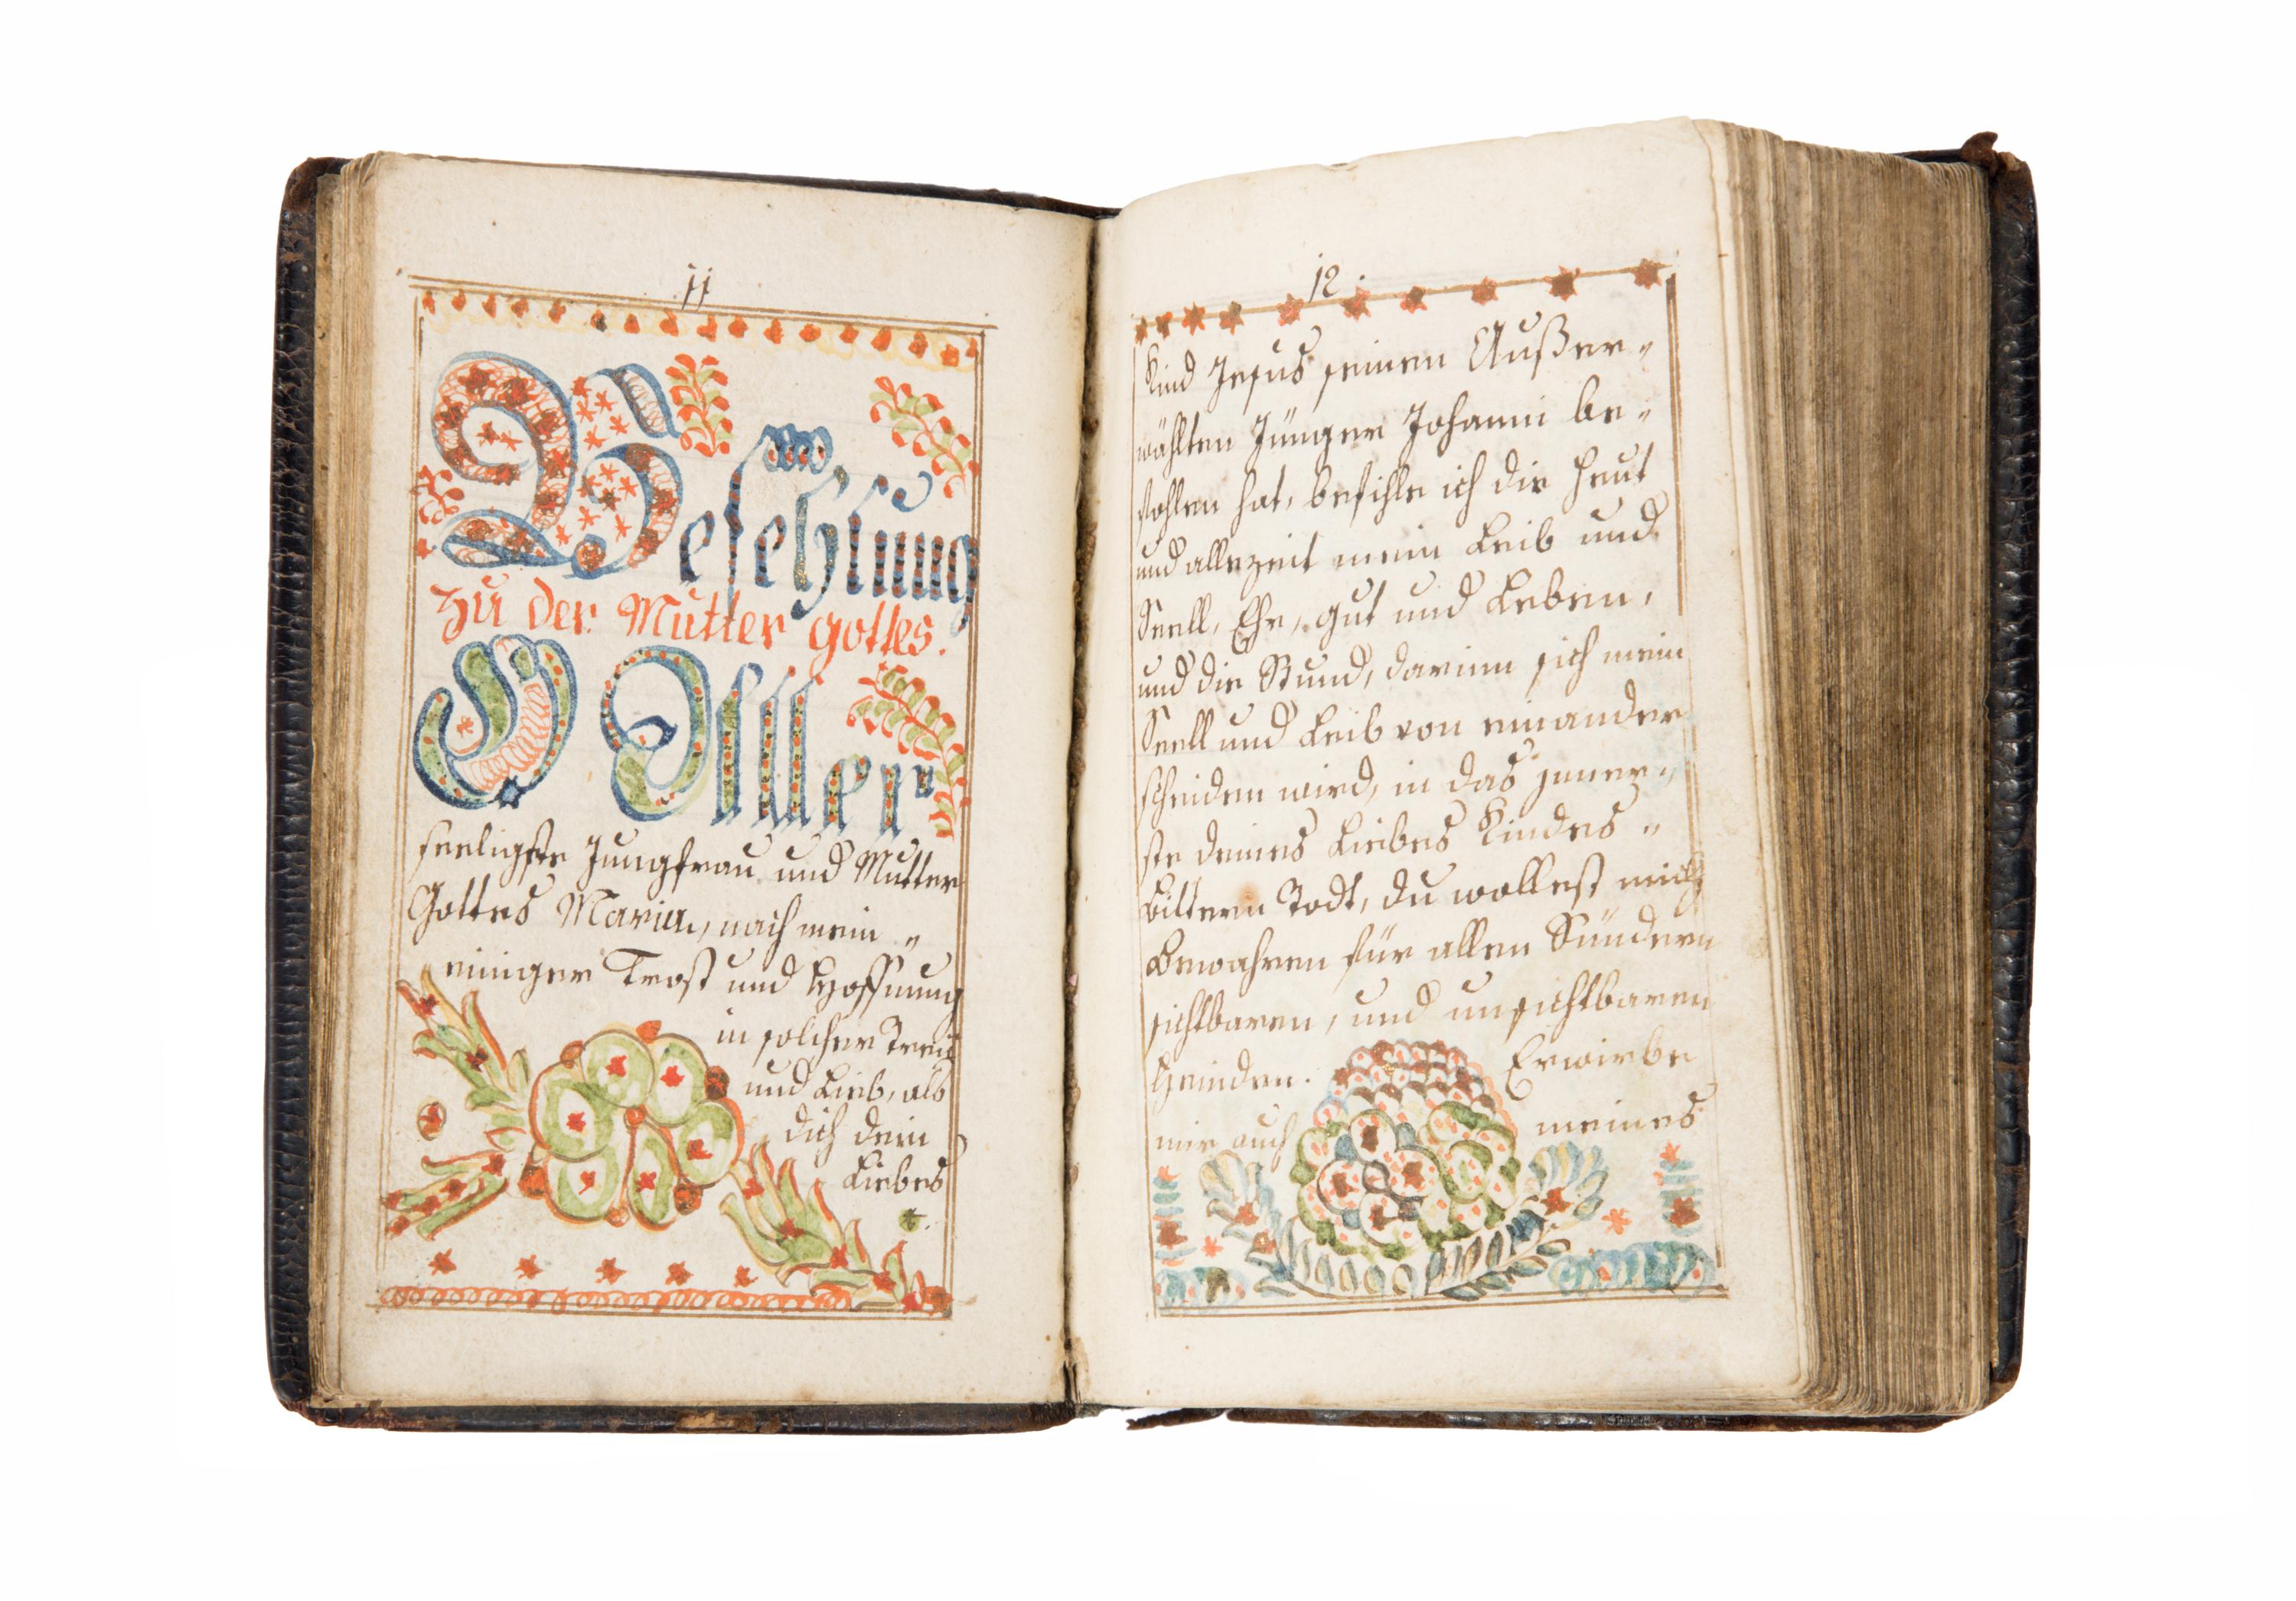 11
Befehlung
zu der Mutter gottes.
O Aller„
seeligste Jungfrau und Mutter
Gottes Maria, nach mein„
einiger Trost und Hoffnung
in solcher Treü
und Lieb, als
dich dein
Liebes
12
Kind Jesus seinen Außer„
wählten Jünger Johanni be„
fohlen hat, befihle ich dir heut
und allezeit mein Leib und
Seell, Ehr, gut und Leben,
und die Stund, darinn sich mein
Seell und Leib von einander
scheiden wird, in das inner„
ste deines Liebes Kindes„
bittern Todt, du wollest mich
bewahren für allen Sündern
sichtbaren, und unsichtbaren
Feinden. Erwirbe
mir auch meines